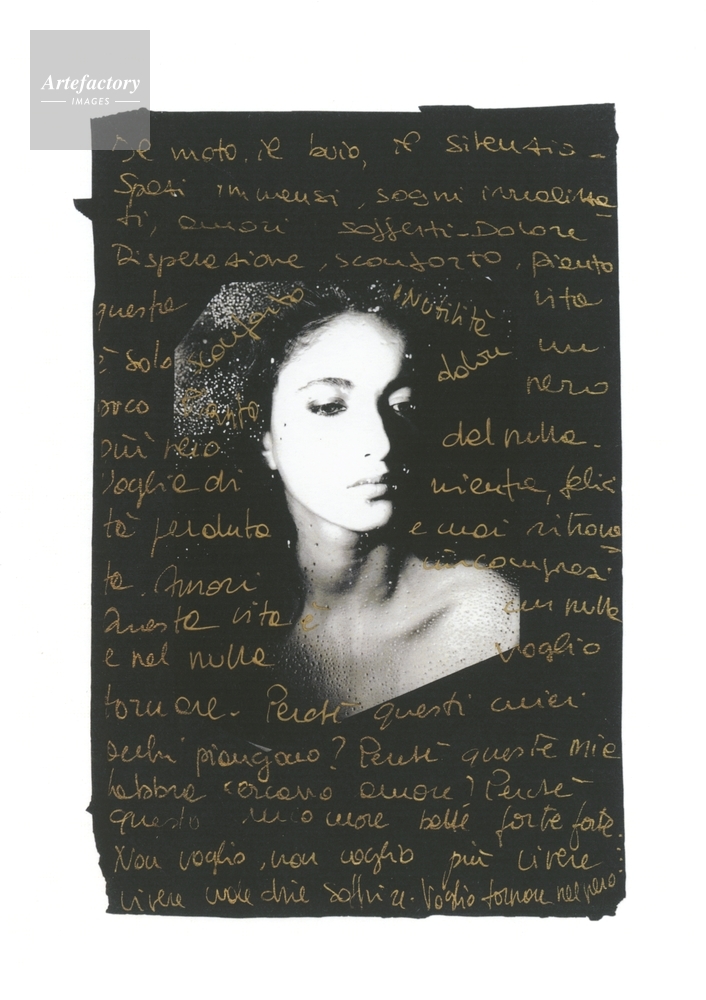 Artefactory
IMAGES
Il moto, il buio, il silenzio -
Spazi immensi, sogni irrealizza
ti, amori sofferti - Dolore
Disperazione, sconforto, pianto
questa sconforto inutilità vita
è solo dolore un
nero
poco
del nulla.
Voglia di niente, felici
tà perduta e mai ritrova
ta. Amori incompresi.
Questa vita è un nulla
e nel nulla voglio
tornare. Perché questi miei
occhi piangono? Perché queste mie
labbra cercano amore? Perché
questo mio cuore batte forte forte.
Non voglio, non voglio più vivere
vivere vuole dire soffrire. Voglio tornare nel nero